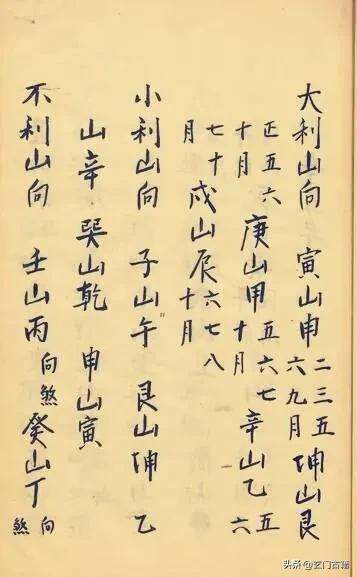 大利山向 寅山申 二三五六九月 坤山艮
正五六十月 庚山甲 五六七十月 辛山乙 五六
七十月 戌山辰 六七八十月
小利山向 子山午 艮山坤 乙
山辛 巽山乾 申山寅
不利山向 壬山丙 向煞 癸山丁 向煞
头条 @玄门古籍